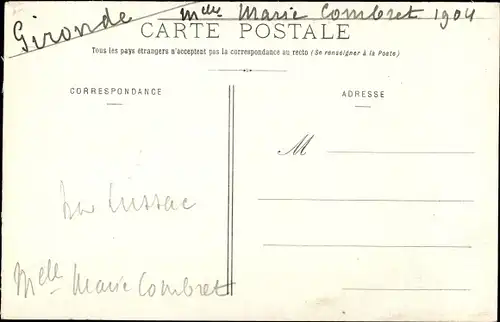 Gironde
Mlle Marie Combret 1904
CARTE POSTALE
Tous les pays étrangers n'acceptent pas la correspondance au recto (Se renseigner à la Poste)
CORRESPONDANCE
ADRESSE
M
Cussac
Melle Marie Combret